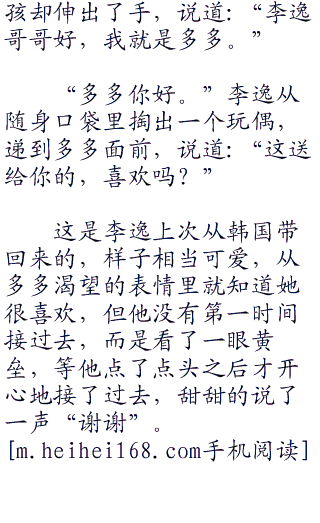 孩却伸出了手，说道：“李逸
哥哥好，我就是多多。”
“多多你好。”李逸从
随身口袋里掏出一个玩偶，
递到多多面前，说道：“这送
给你的，喜欢吗？”
这是李逸上次从韩国带
回来的，样子相当可爱，从
多多渴望的表情里就知道她
很喜欢，但他没有第一时间
接过去，而是看了一眼黄
垒，等他点了点头之后才开
心地接了过去，甜甜的说了
一声“谢谢”。
[m.heihei168.com手机阅读]